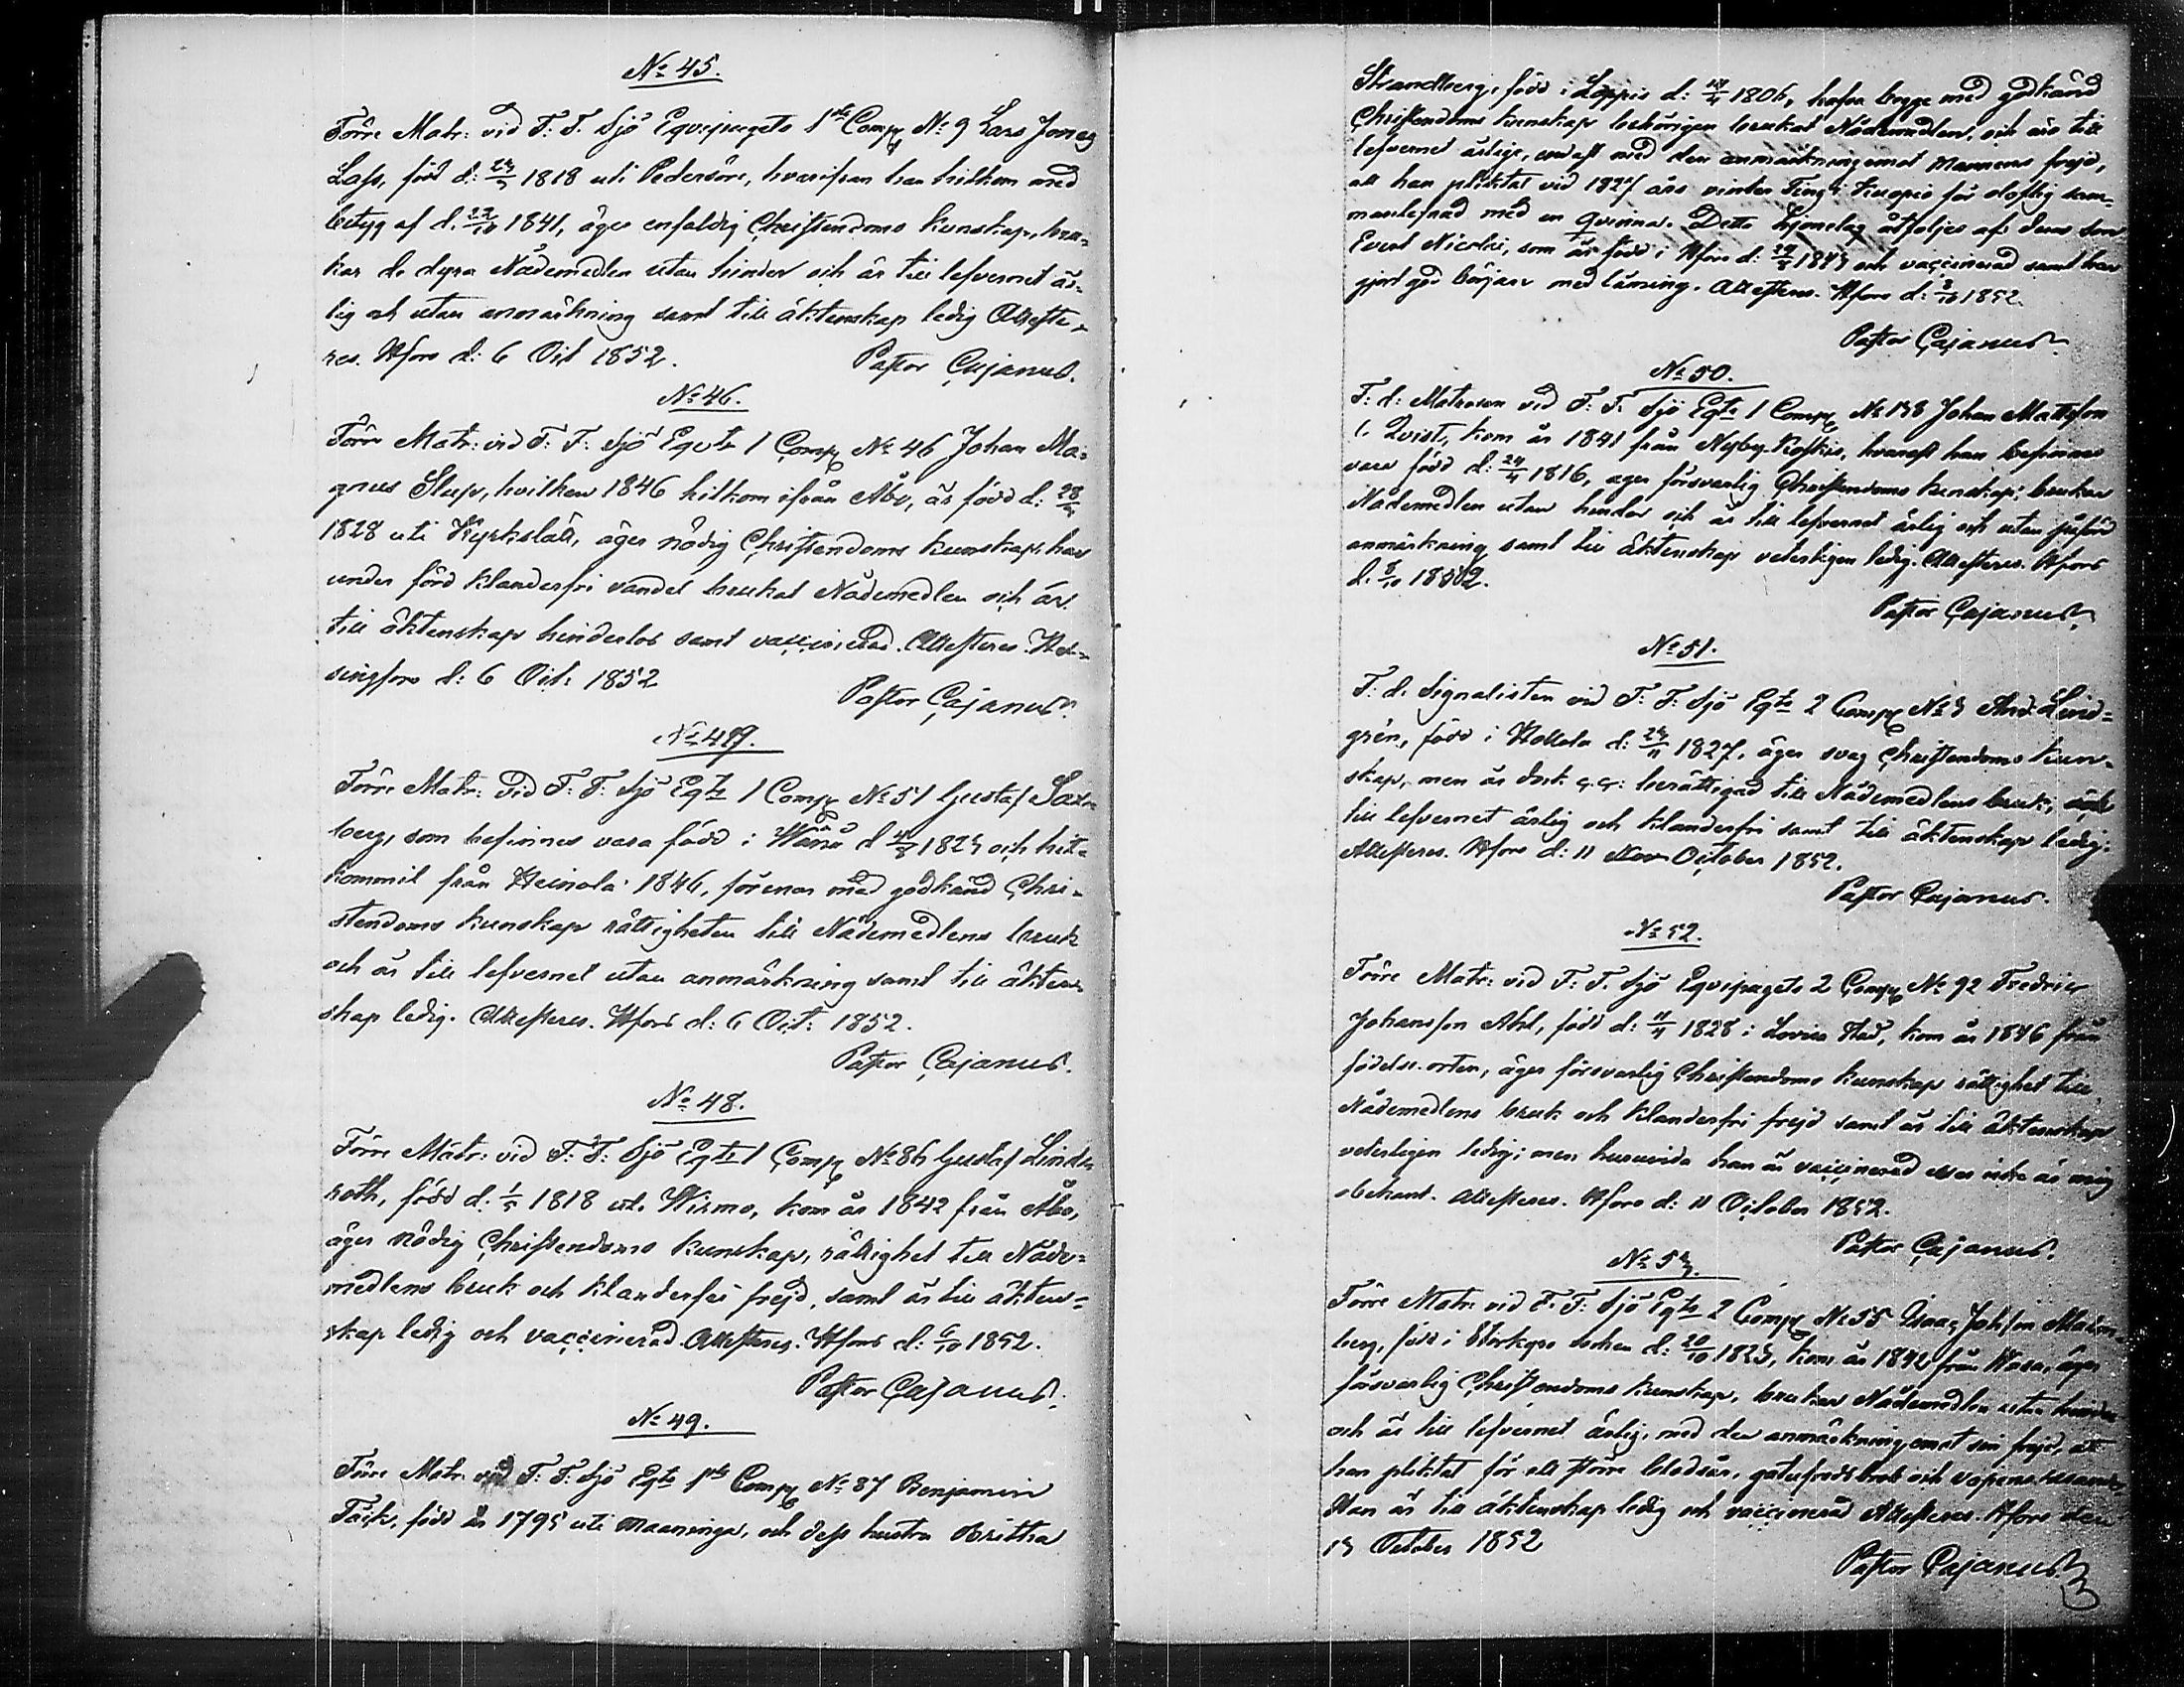 No 45.
Förre Matr: vid F: F. Sjö Eqvipagets 1sta Comp No 9 Lars Jonas
Lass, född d: 1818 uti Pedersöre, hvarifran han hitkom med
betyg af d. 22/10 1841, äger enfaldig Christendoms kunskap, bru-
kar de dyra Nådemedlen utan hinder och är till lefvernet är-
lig och utan anmärkning samt till äktenskap ledig Atteste-
res. Hfors d: 6 Oct 1852. Pastor Cajanus.
No 46.
Förre Matr: vid F: F: Sjö Eqvts 1 Comp No 46 Johan Ma-
gnus Slup, hvilken 1846 hitkom ifrån Åbo, är född d:
1828 uti Kyrkslätt, äger nödig Christendoms kunskap, har
under förd klanderfri vandel brukat Nådemedlen och är
till äktenskap hinderlös samt vaccinerad. Attesteres. Hel-
singfors d: 6 Oct: 1852
Pastor Cajanus.
No 47.
Förre Matr: vid F: F: Sjö Eqts 1 Comp No 51 Gustaf Sax-
berg, som befinnes vara född i Wånå d och hit-
kommit från Heinola 1846, förenar med godkänd Chri-
stendoms kunskap rättigheten till Nådemedlens bruk
och är till lefvernet utan anmärkning samt till äkten-
skap ledig. Attesteres. Hfors d: 6 Oct: 1852.
Pastor Cajanus.
No 48.
Förre Matr: vid F: F: Sjö Eqts 1 Comp No 86 Gustaf Lind-
roth, född d: 1/5 1818 uti Wirmo, kom år 1842 från Åbo,
äger nödig Christendoms kunskap, rättighet till Nåde-
medlens bruk och klanderfri frejd, samt är till äkten-
skap ledig och vaccinerad. Attesteres. Hfors d: 6/10 1852.
Pastor Cajanus.
No 49.
Förre Matr. vid F: F: Sjö Eqts 1sta Comp No 87 Benjamin
Täck, född år 1795 uti Maaninga, och dess hustru Britha
Strandberg, född i Loppis d: 1806, hafva begge med godkänd
Christendoms kunskap behörigen brukat Nådemedlen, och äro till
lefvernet ärlige, endast med den anmärkning emot Mannens frejd,
att han pliktat vid 1827 års vinter Ting i Kuopio för oloflig sam-
manlefnad med en qvinna. Detta Hjonelag åtföljes af dess son
Evert Nicolai, som är född i Hfors d: och vaccinerad samt har
gjort god början med läsning. Attesteres. Hfors d: 8/10 1852.
Pastor Cajanus.
No 50.
F: d: Matrosen vid F: F: Sjö Eqts 1 Comp No 138 Johan Mattsson
l. Qvist, kom år 1841 från Nyby Koskis, hvarest han befinnes
vara född d: 24/4 1816, äger försvarlig Christendoms kunskap, brukar
Nådemedlen utan hinder och är till lefvernet ärlig och utan påförd
anmärkning samt till äktenskap veterligen ledig. Attesteres. Hfors
d. 8/10 1852.
Pastor Cajanus.
No 51.
F: d. Signalisten vid F: F: Sjö Eqts 2 Comp No 3 And: Lind-
grén, född i Hollola d: 1827, äger svag Christendoms kun-
skap, men är dock berättigad till Nådemedlens bruk,
till lefvernet ärlig och klanderfri samt till äktenskap ledig.
Attesteres. Hfors d: 11 Nov October 1852.
Pastor Cajanus.
No 52.
Förre Matr: vid F: F. Sjö Eqvipagets 2 Comp No 92 Fredric
Johansson Ahl, född d: 1828 i Lovisa Stad, kom år 1846 från
födelse orten, äger försvarlig Christendoms kunskap rättighet till
Nådemedlens bruk och klanderfri frejd samt är till äktenskap
veterligen ledig; men huruvida han är vaccinerad eller icke är mig
obekant. Attesteres. Hfors d: 11 October 1852.
Pastor Cajanus.
No 53.
Förre Matr: vid F: F: Sjö Eqts 2 Comp No 55 Isaac Johsson Malm-
berg, född i Storkyro socken d: 20/10 1823, kom år 1842 från Wasa, äger
försvarlig Christendoms kunskap, brukar Nådemedlen utan hinder
och är till lefvernet ärlig, med den anmärkning emot sin frejd, att
han pliktat för ett större blodsår, gatufridsbrott och
Han är till äktenskap ledig och vaccinerad Attesteres. Hfors den
13 October 1852
Pastor Cajanus